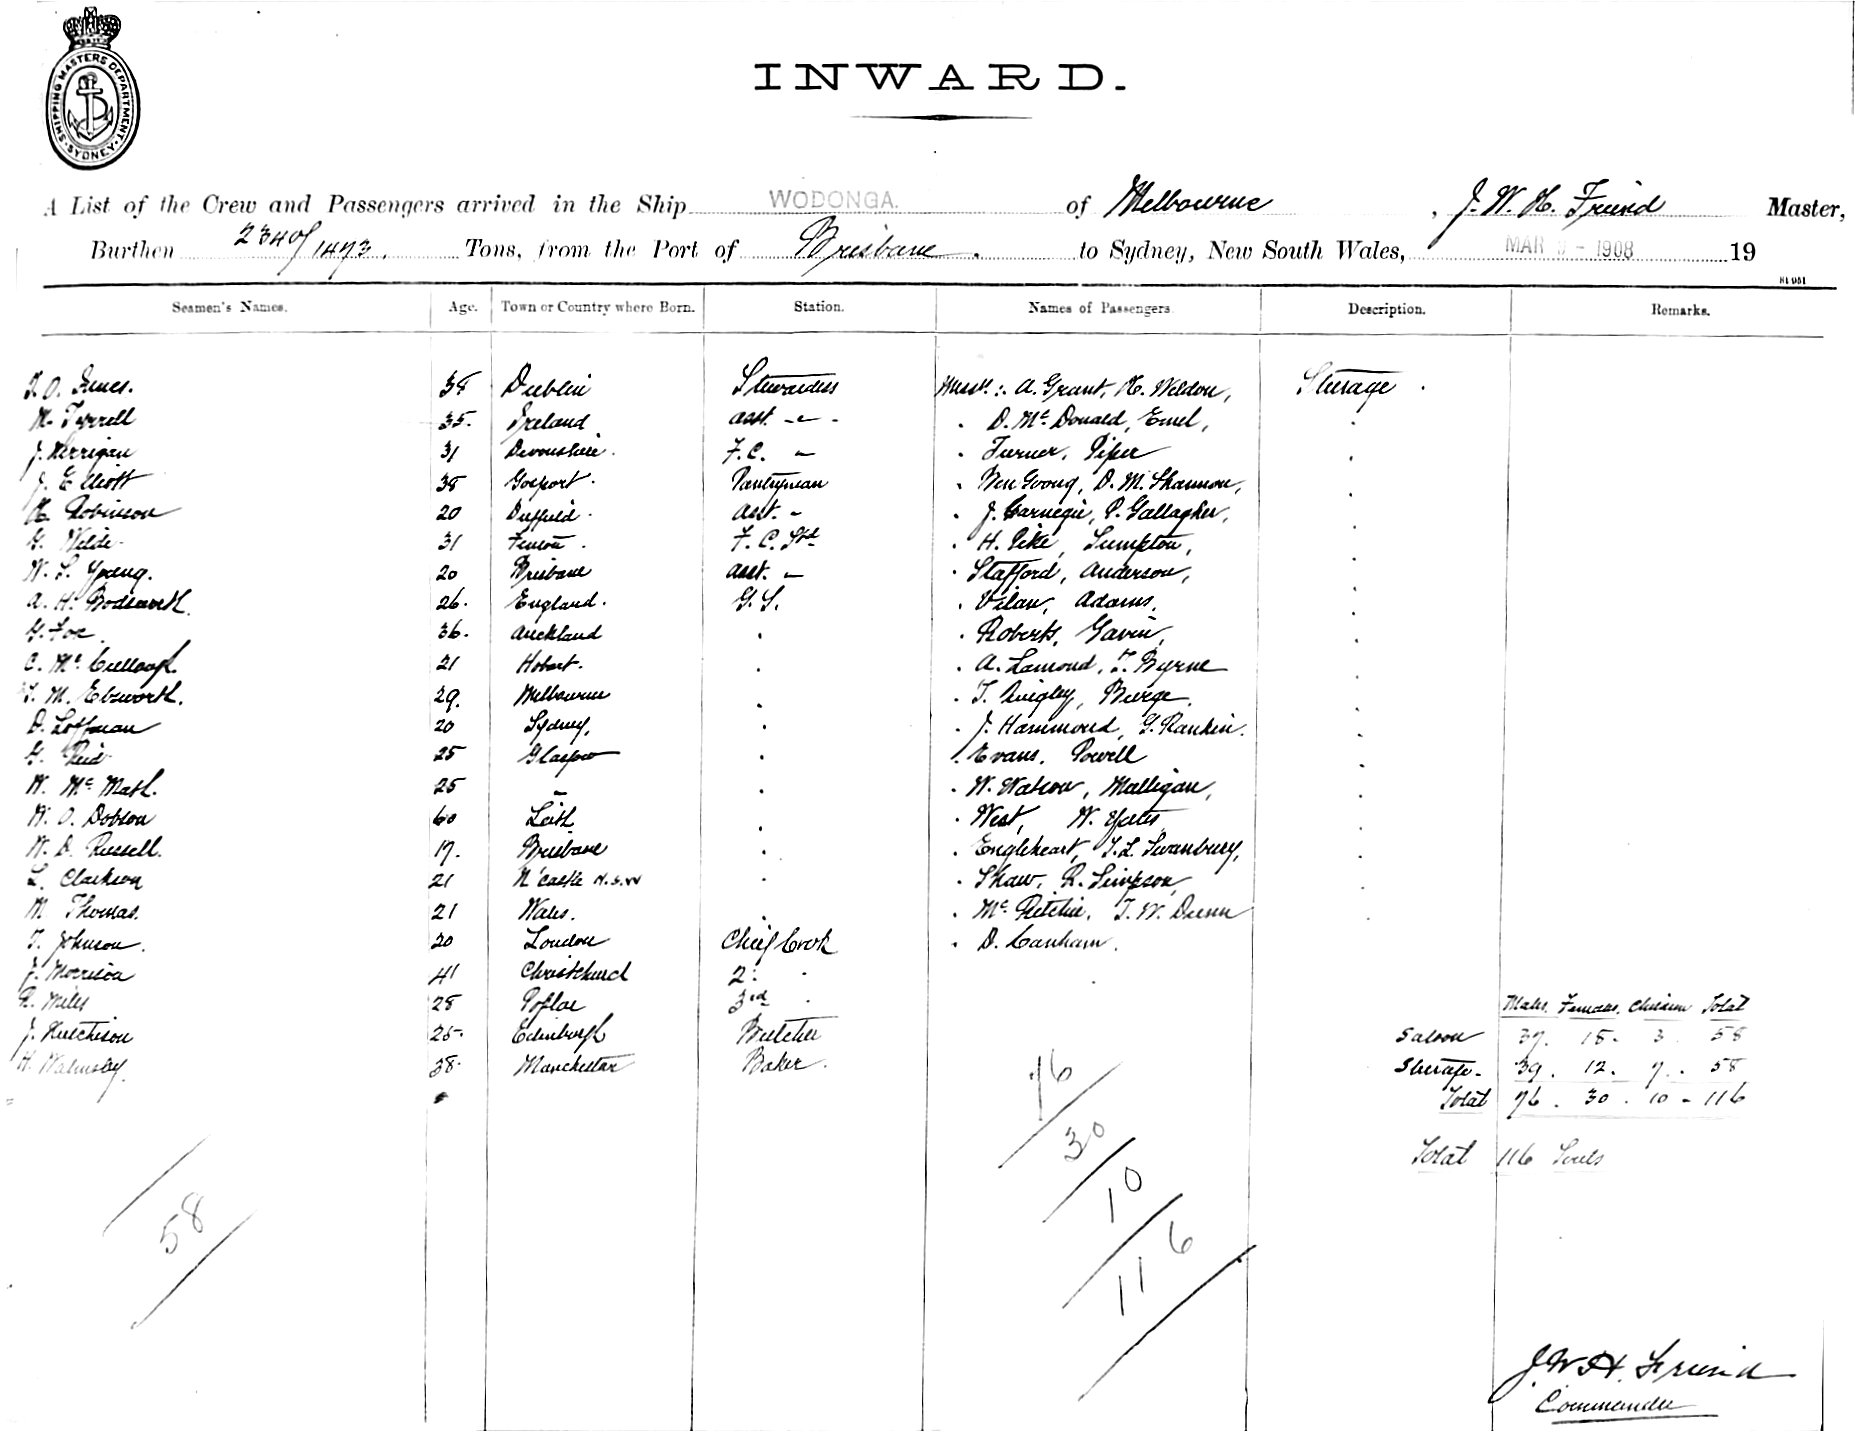 SHIPPING MASTERS DEPARTMENT
SYDNEY
INWARD.
A List of the Crew and Passengers arrived in the Ship WODONGA. of Melbourne, J. W. H. Friend Master,
Burthen 2340/1473. Tons, from the Port of Brisbane. to Sydney, New South Wales, MAR - 1908 19
Seamen's Names. Age. Town or Country where Born. Station. Names of Passengers. Description. Remarks.
38 Dublin Stewardess A. Grant, H. Weldon, Steerage
M. Tyrrell 35. Ireland asst. - " - D. Mc Donald,
J. Kerrigan 31 Devonshire. F.C. " Turner, Piper
J. Elliott 38 Gosport. Pantryman D. M. Shannon,
H. Robinson 20 Duffield. asst. " J. Carnegie, P. Gallagher,
G. Wilde 31 F. C. Std H. Pike, Sumpton,
W. S. Young. 20 Brisbane asst. " Stafford, Anderson,
A. H. Bodsworth. 26. England. G.S. Adams,
G. Foe. 36. Auckland Roberts, Gavin,
C. Mc Cullough. 21 Hobart. A. Lamond, T. Byrne
T. M. Ebsworth. 29. Melbourne T. Quigley, Burge,
D. Loffman 20 Sydney, J. Hammond, G. Rankin.
G. Reid 25 Glasgow Evans, Powell
W. Mc Math. 25 " W. Watson, Malligan,
W. O. Dobson 60 Leith West, W. Yates,
W. D. Russell. 17. Brisbane Engleheart, T. L. Swanbury,
L. Clarkson 21 N'castle N.S.W Shaw, R. Simpson,
M Thomas. 21 Wales. Mc Ritchie, T. W. Dunn
T. Johnson. 30 London Chief Cook D. Canham.
J. Morrison 41 Christchurch 2.
R. Miles 28 Poplar 3rd
J. Hutchison 25. Edinburgh Butcher
H. Walmsley. 38. Manchester Baker.
Males, Females, Children Total
Saloon 37. 18. 3 58
Steerage. 39. 12. 7. 58
Total 76. 30. 10 - 116
Total 116 Souls
76
30
10
116
58
J. W. H. Friend
Commander